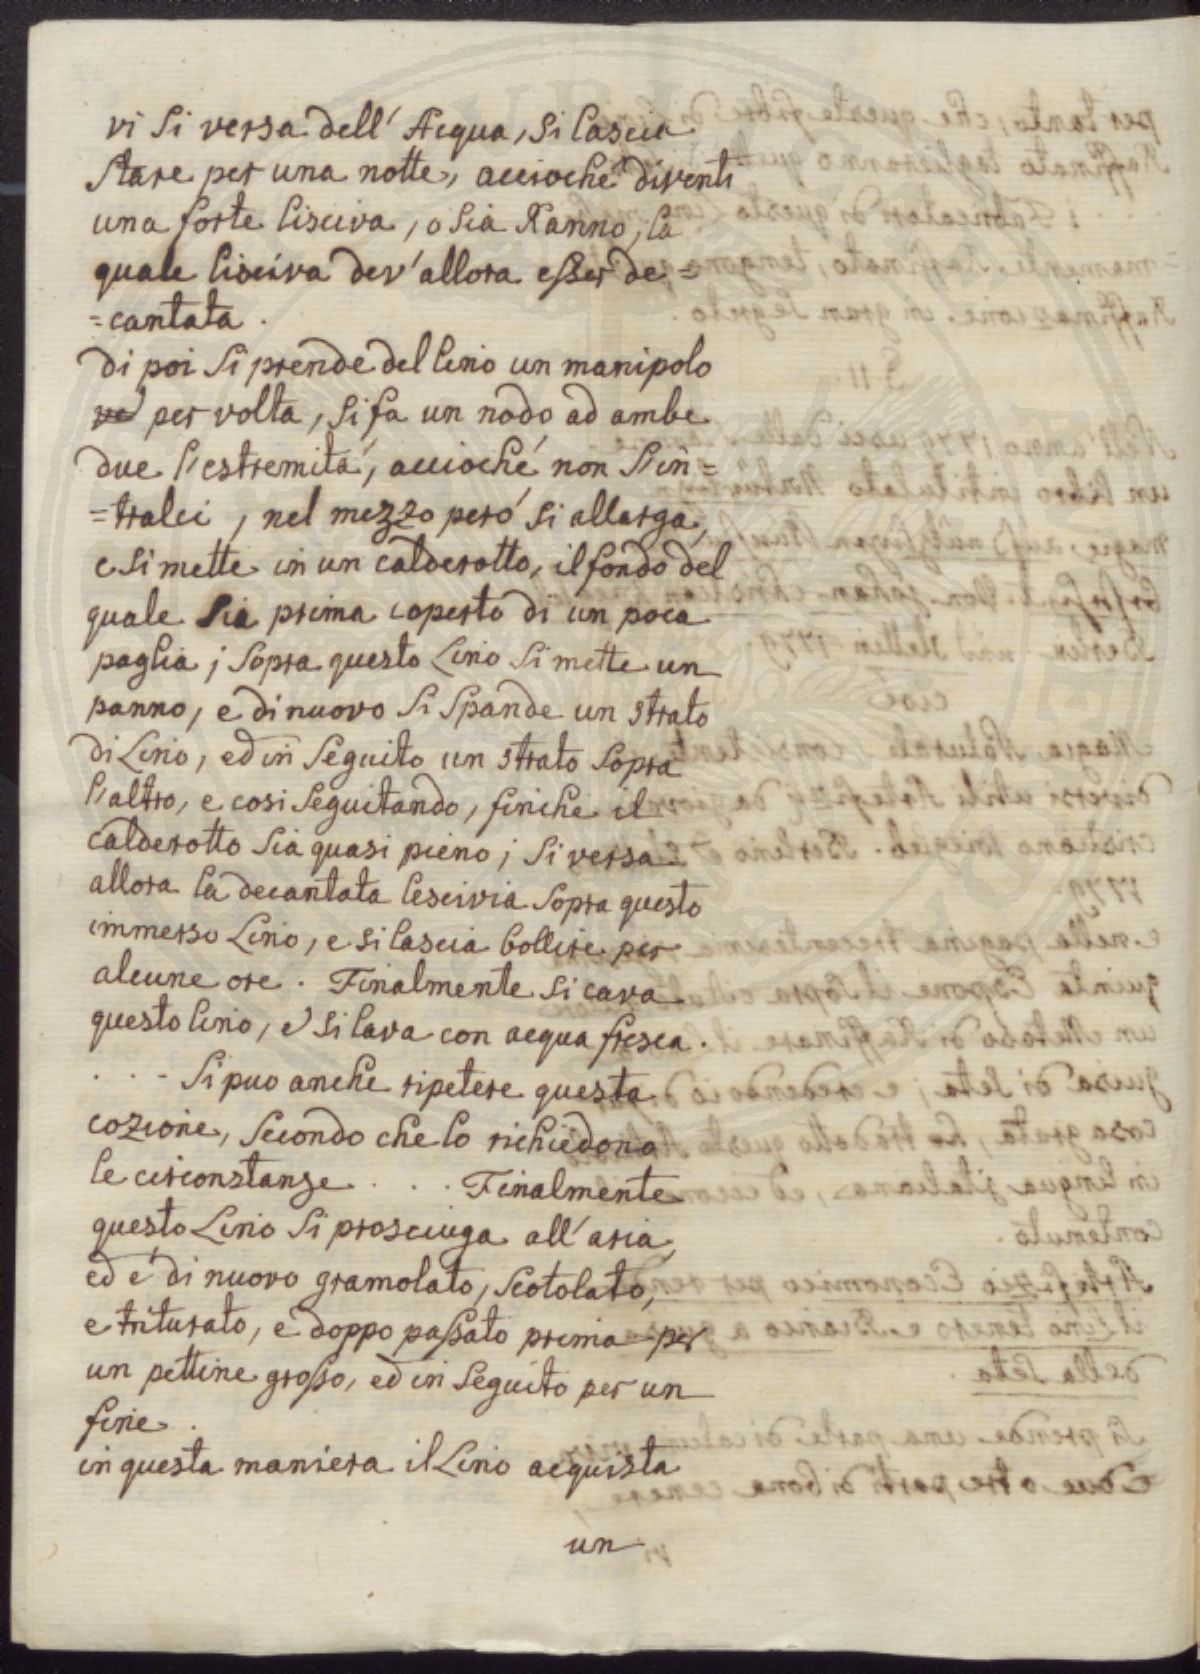 vi si versa dell' Acqua, si lascia
stare per una notte, accioché diventi
una forte lisciva, o sia Ranno, la
quale lisciva dev' allora esser de=
=cantata.
di poi si prende del lino un manipolo
per volta, si fa un nodo ad ambe
due l'estremitá, accioché non s'in=
=tralci, nel mezzo peró si allarga,
e si mette in un calderotto, il fondo del
quale sia prima coperto di un poca
paglia; sopra questo Lino si mette un
panno, e di nuovo si spande un strato
di Lino, ed in seguito un strato sopra
l'altro, e cosi seguitando, finche il
calderotto sia quasi pieno; si versa
allora la decantata lescivia sopra questo
immerso Lino, e si lascia bollire per
alcune ore. Finalmente si cava
questo lino, e si lava con acqua fresca.
. . - Si puo anche ripetere questa
cozione, secondo che lo richiedono
le circonstanze . . . Finalmente
questo Lino si prosciuga all' aria,
ed é di nuovo gramolato, scotolato,
e triturato, e doppo passato prima per
un pettine grosso, ed in seguito per un
fine.
in questa maniera il Lino acquista
un